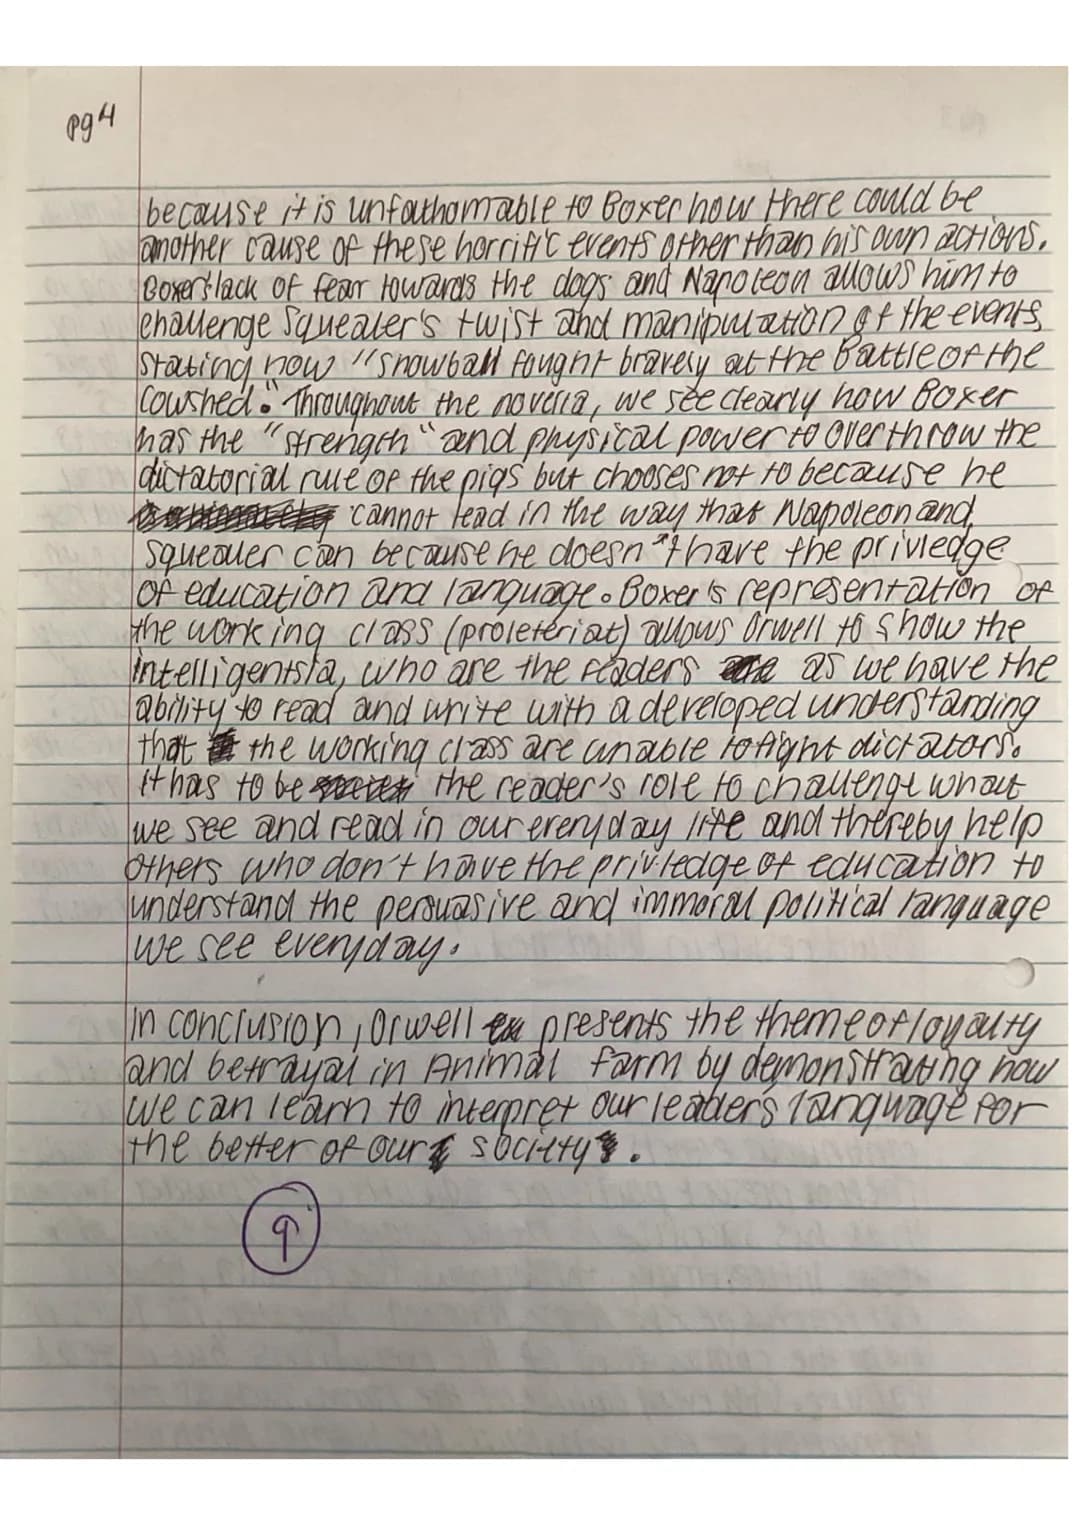 pg 4
because it is unfathomable to Boxer how there could be
another cause of these horrific events other than his own actions.
Boxer's lack of fear towards the dogs and Napoleon allows him to
challenge Squealer's twist and manipulation of the events,
stating how "snowball fought bravely at the Battle of the
Cowshed." Throughout the novella, we see clearly how Boxer
has the "strength" and physical power to overthrow the
dictatorial rule of the pigs but chooses not to because he
cannot lead in the way that Napoleon and
Squealer can because he doesn't have the privledge
of education and language. Boxer's representation of
the working class (proleteriat) allows Orwell to show the
intelligentsia, who are the readers as we have the
ability to read and write with a developed understanding
that the working class are unable to fight dictators.
It has to be the reader's role to challenge what
we see and read in our everyday life and thereby help
others who don't have the priviledge of education to
understand the persuasive and immoral political language
we see everyday.
In conclusion, Orwell presents the theme of loyalty
and betrayal in Animal farm by demonstrating how
we can learn to interpret our leader's language for
the better of our society.
9